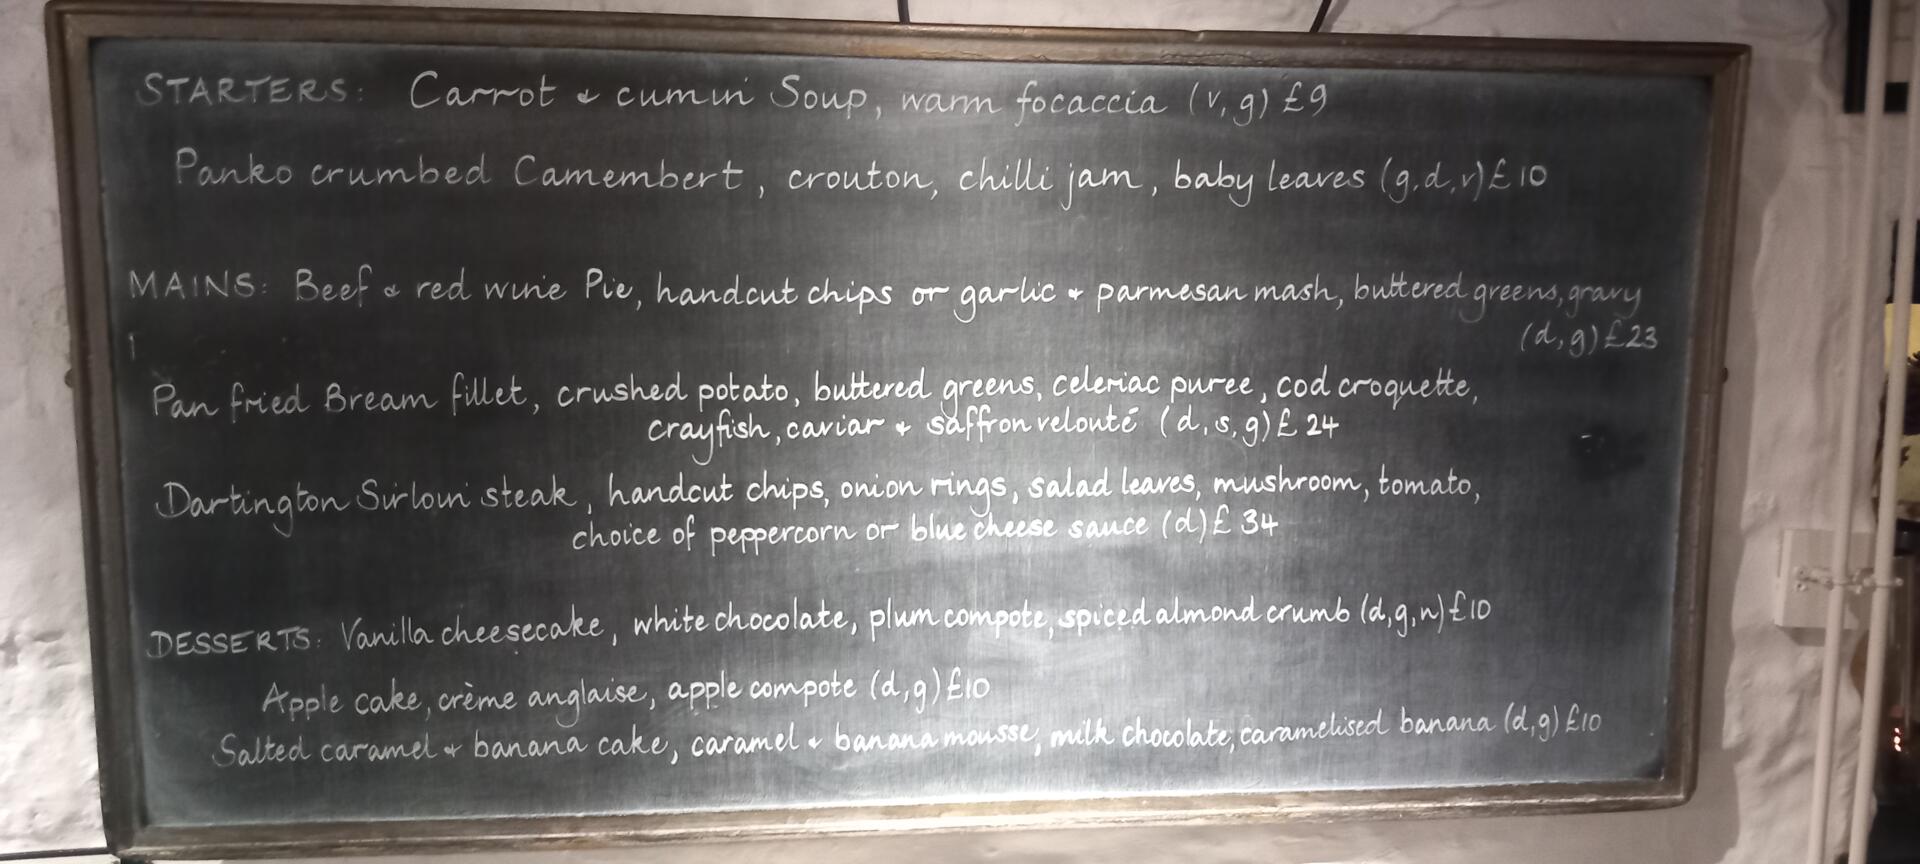 STARTERS: Carrot & cumin Soup, warm focaccia (v, g) £9
Panko crumbed Camembert, crouton, chilli jam, baby leaves (g, d, v) £10
MAINS: Beef & red wine Pie, handcut chips or garlic + parmesan mash, buttered greens, gravy
(d, g) £23
Pan fried Bream fillet, crushed potato, buttered greens, celeriac puree, cod croquette,
crayfish, caviar + saffron velouté (d, s, g) £24
Dartington Sirloin steak, handcut chips, onion rings, salad leaves, mushroom, tomato,
choice of peppercorn or blue cheese sauce (d) £34
DESSERTS: Vanilla cheesecake, white chocolate, plum compote, spiced almond crumb (d, g, n) £10
Apple cake, crème anglaise, apple compote (d, g) £10
Salted caramel + banana cake, caramel + banana mousse, milk chocolate, caramelised banana (d, g) £10